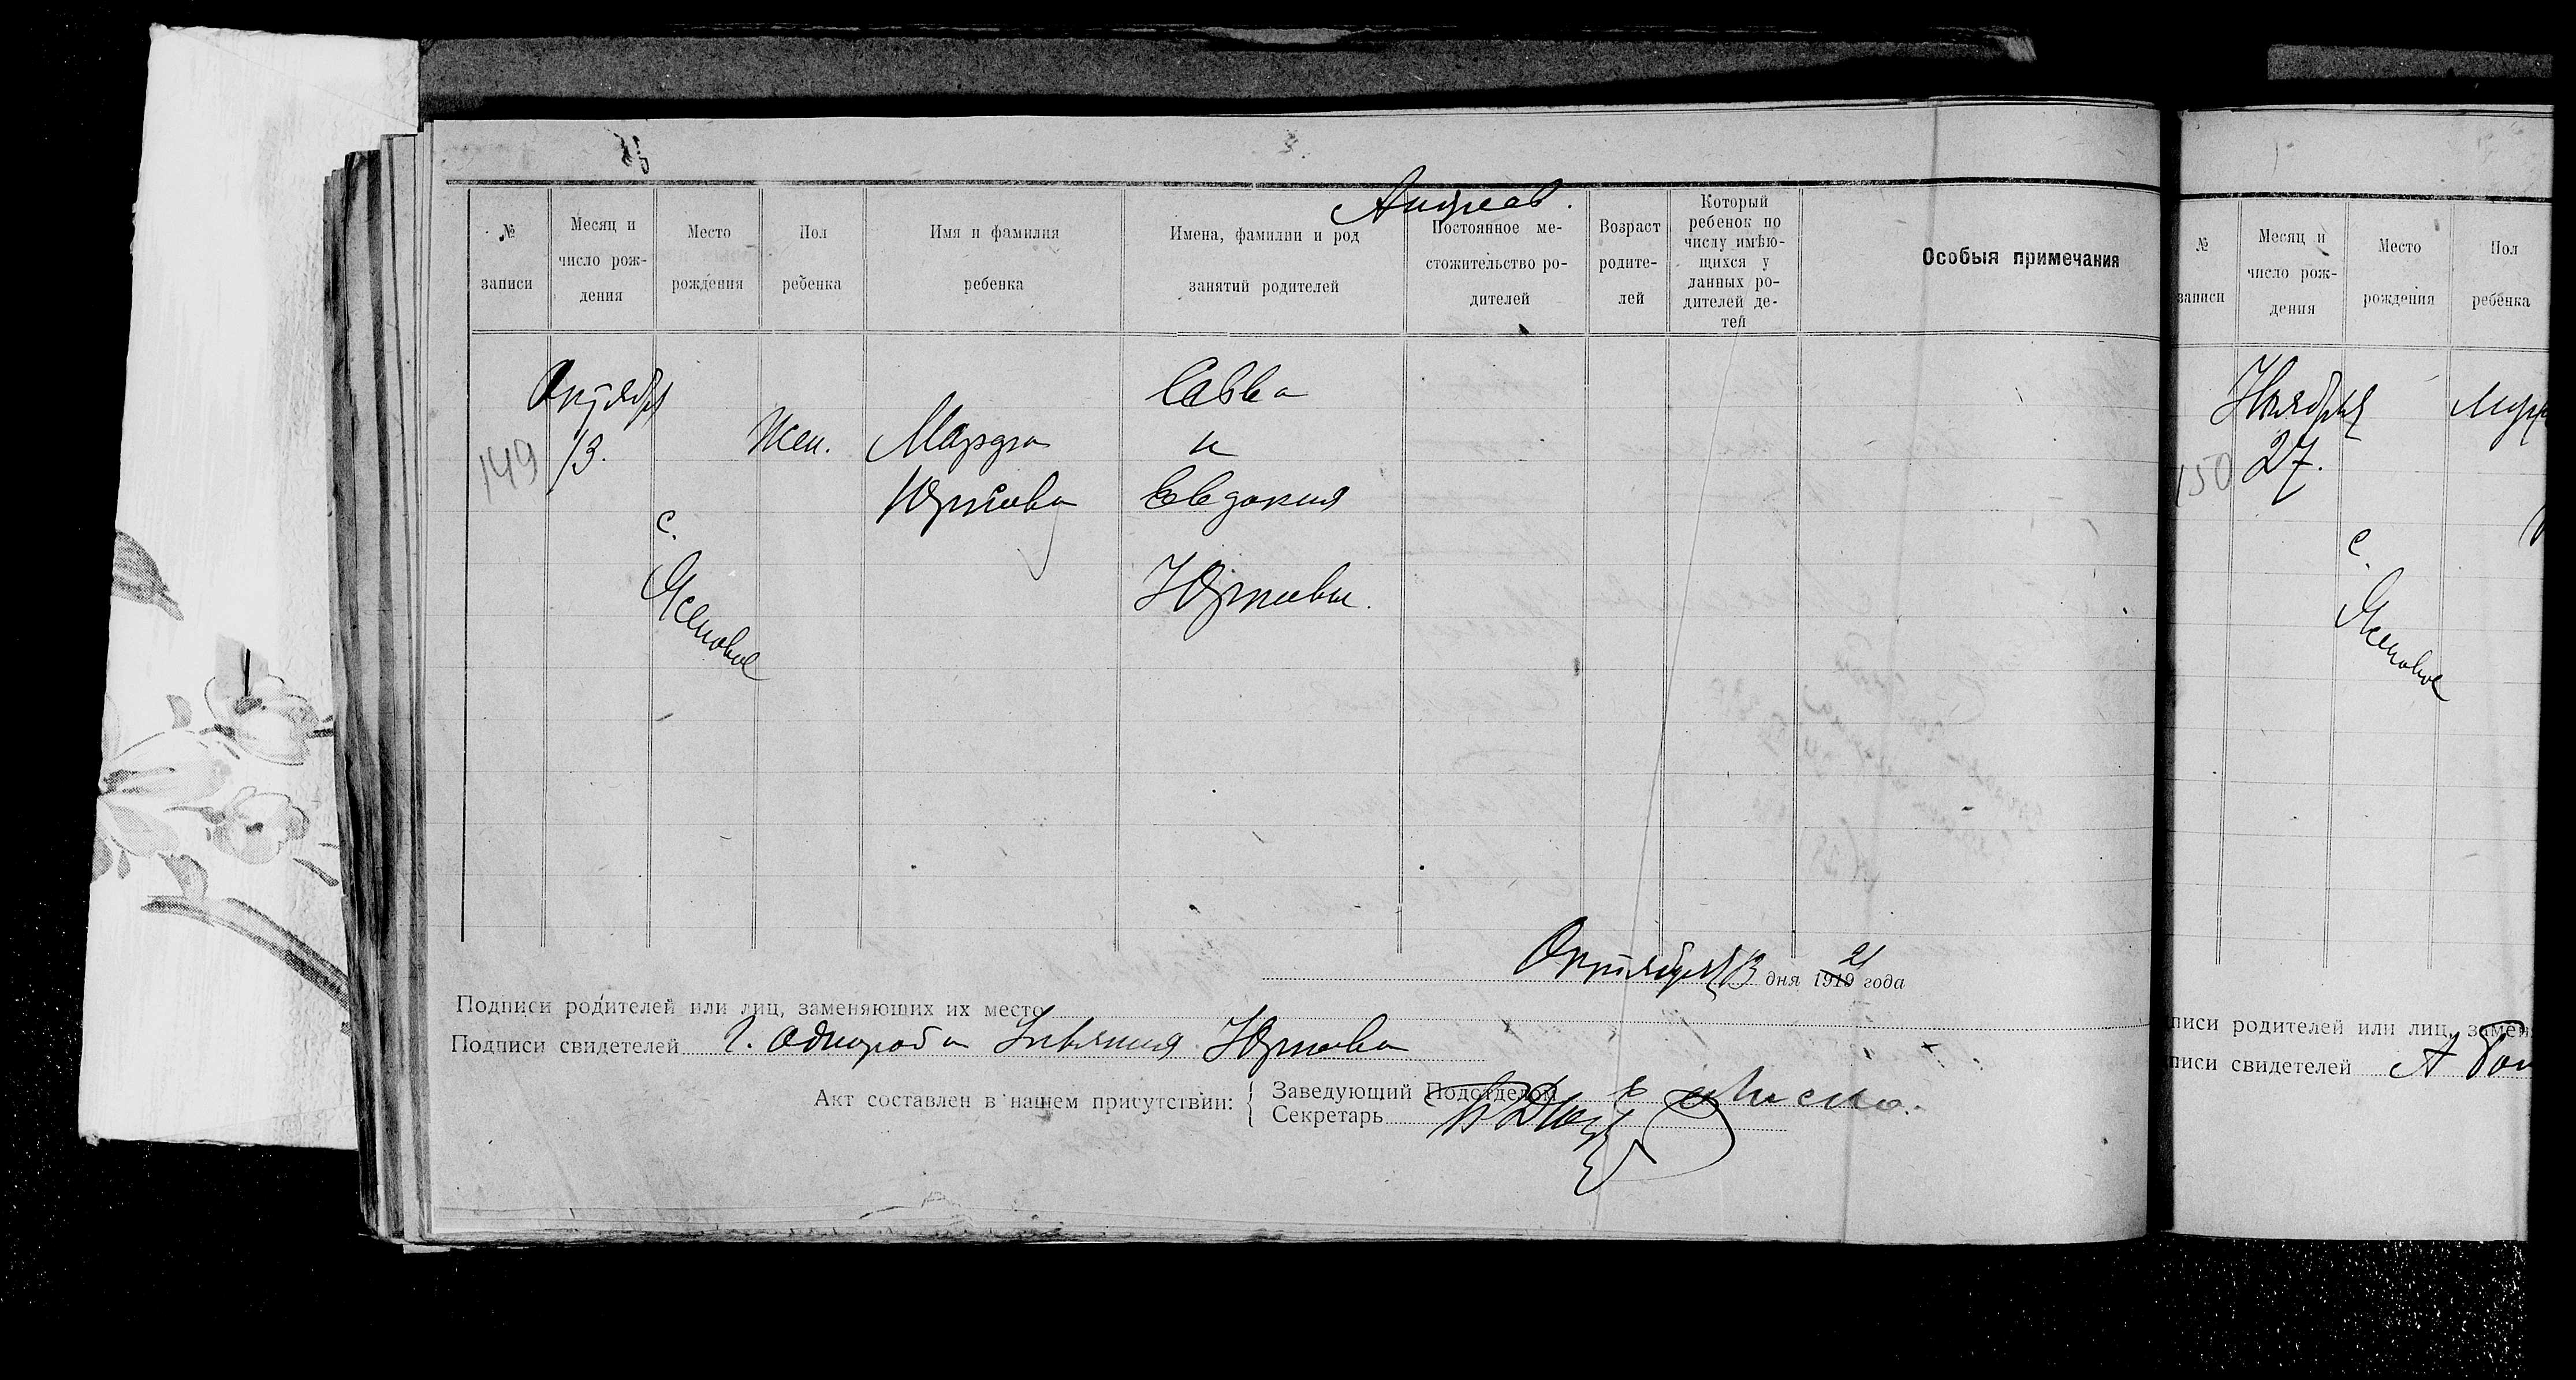 Андреев.
№ записи
Месяц и число рождения
Место рождения
Пол ребенка
Имя и фамилия ребенка
Имена, фамилии и род занятий родителей
Постоянное местожительство родителей
Возраст родителей
Который ребенок по числу имѣющихся у данных родителей детей
Особыя примечания
149
Октября
13.
с.
Ясеновое
Жен.
Марфа
Юртова
Савва
и
Евдокия
Юртовы.
Октября 13 дня 1919 21 года
Подписи родителей или лиц, заменяюших их место
Подписи свидетелей Г. Юртова
Акт составлен в нашем присутствии:
Заведующий Подотделом
Секретарь
№ записи
Месяц и число рождения
Место рождения
Пол ребенка
150
Ноября
27.
с.
Ясеновое
писи родителей или лиц, замен
писи свидетелей А